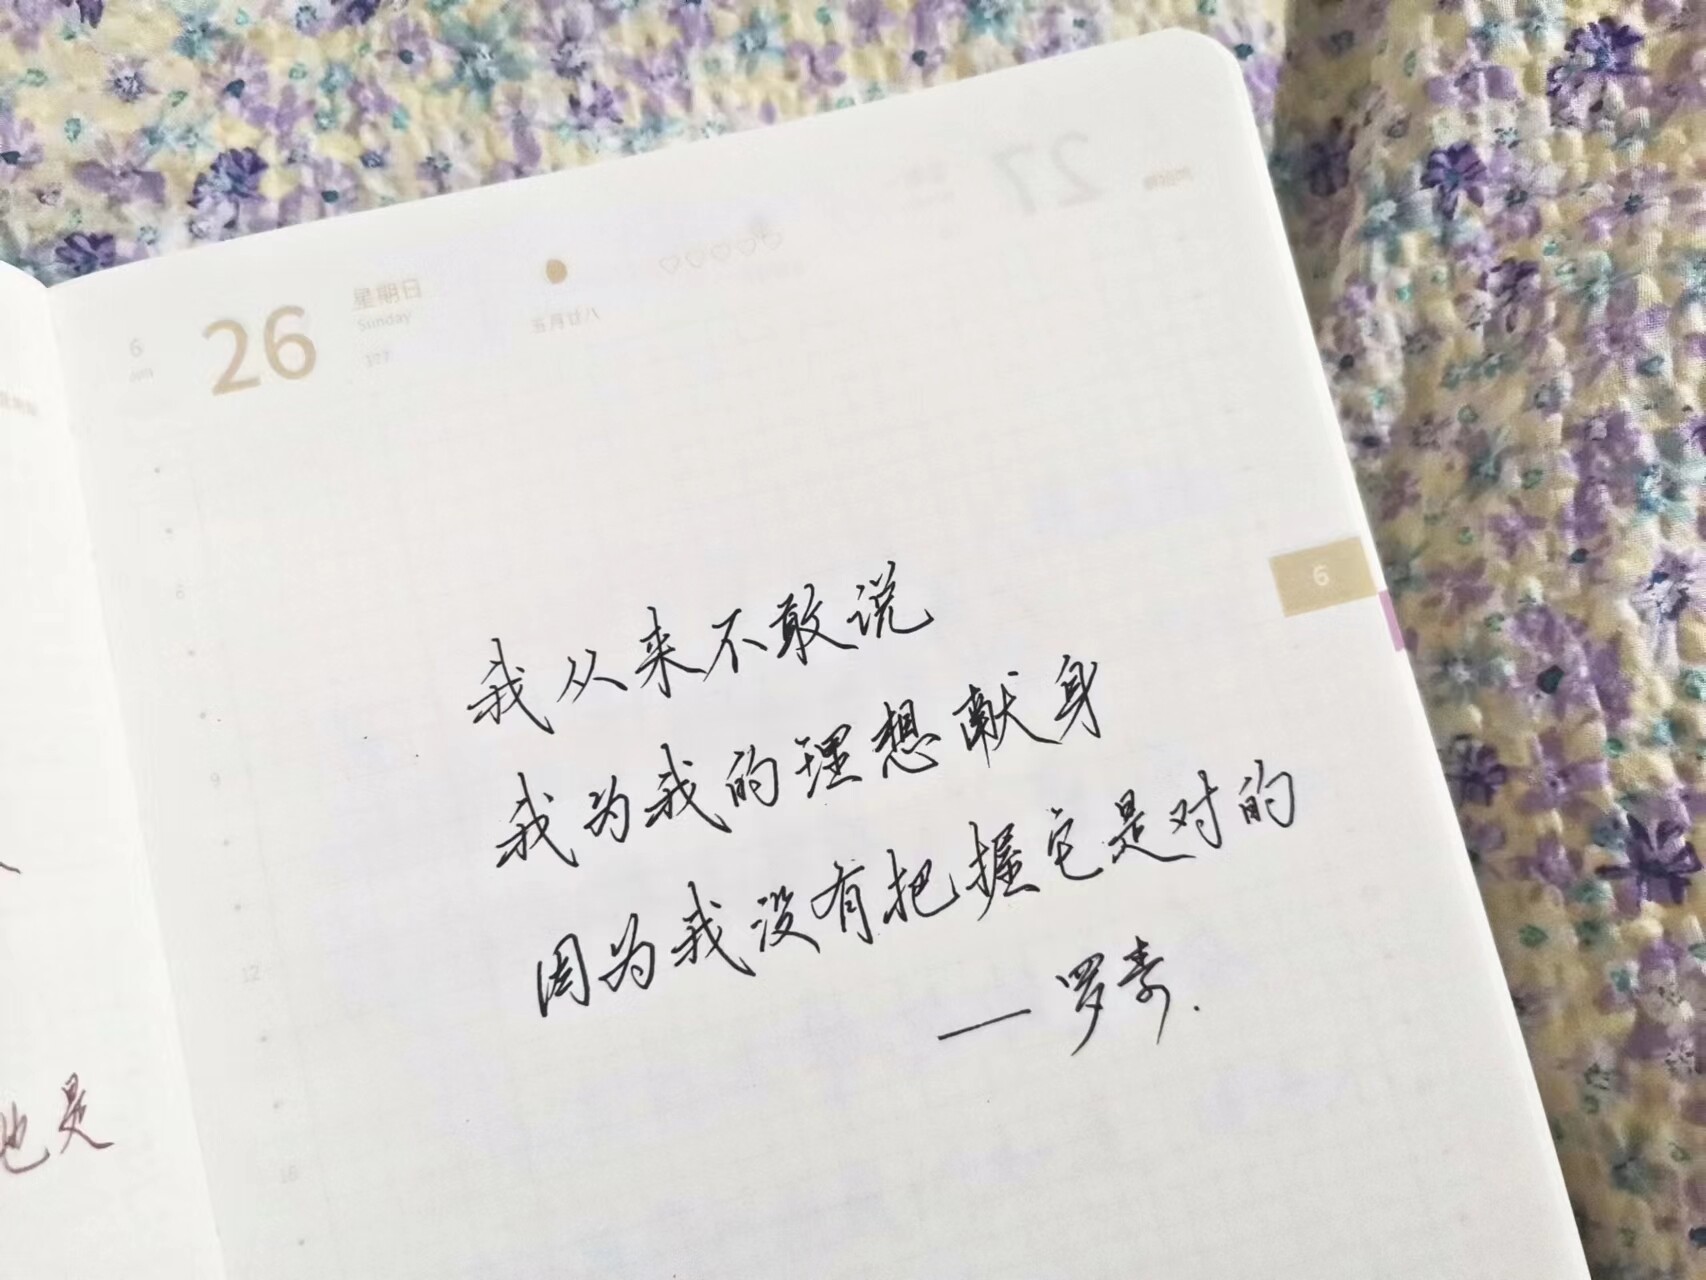 6
26
星期日
Sunday
177
五月廿八
27
6
6
9
12
我从来不敢说
我为我的理想献身
因为我没有把握它是对的
—罗素.
也是